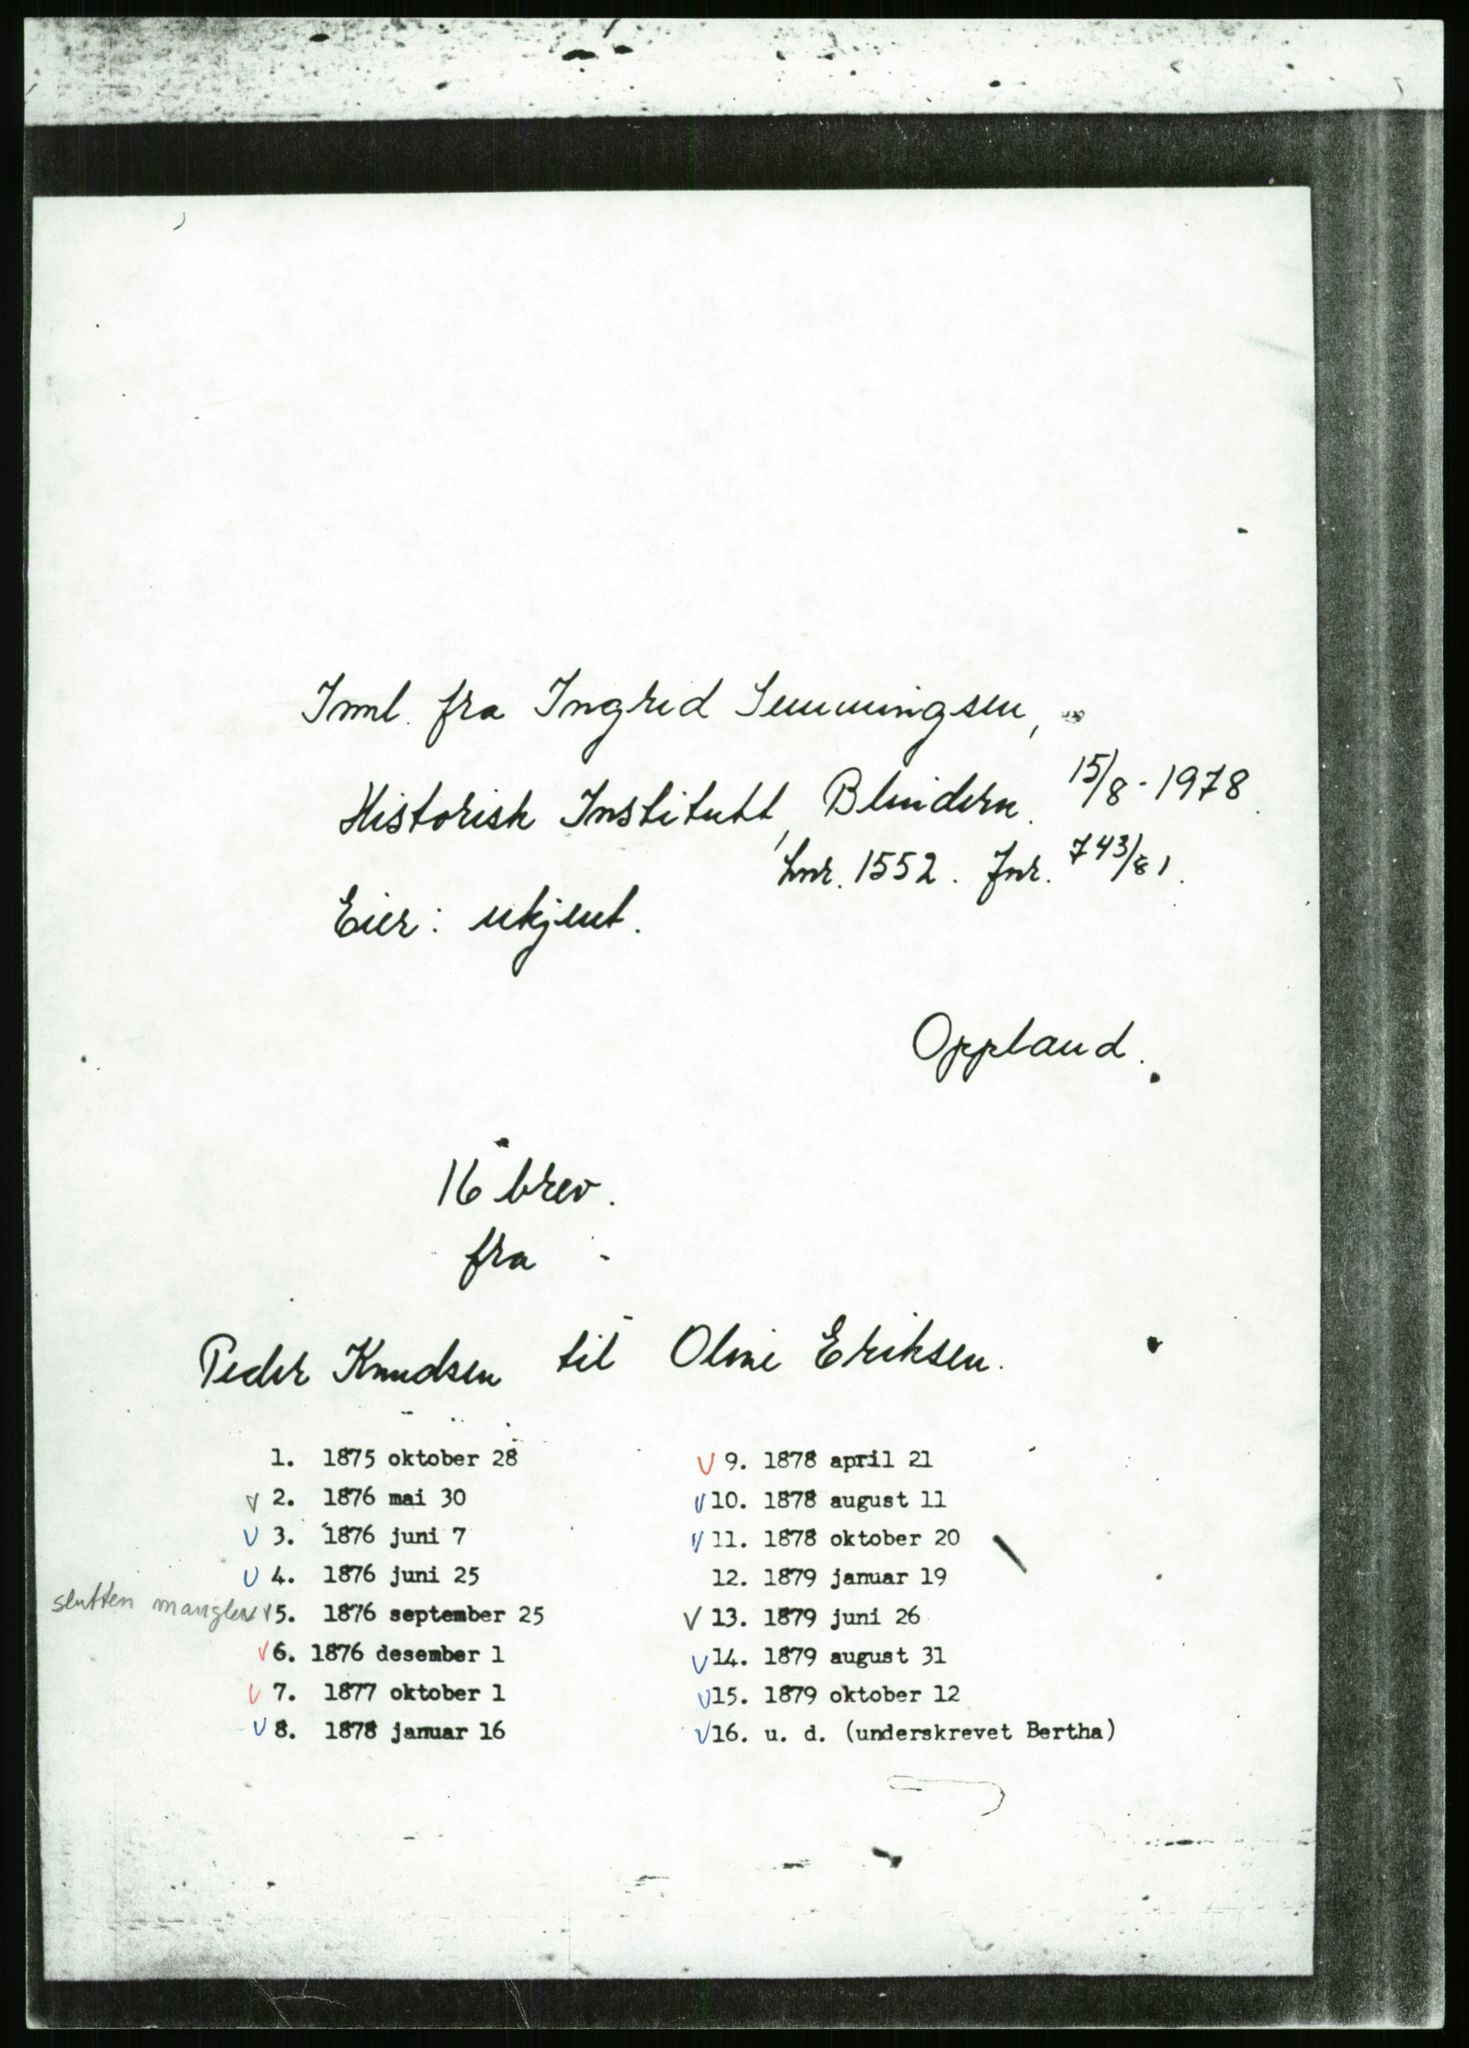 Innl. fra Ingrid Semmingsen,
Historisk Institutt, Blindern. 15/8-1978.
Lnr. 1552. Jnr. 743/81.
Eier: ukjent.
Oppland.
16 brev.
fra
Peder Knudsen til Oline Eriksen.
1. 1875 oktober 28
V 2. 1876 mai 30
V 3. 1876 juni 7
V 4. 1876 juni 25
slutten mangler V 5. 1876 september 25
V 6. 1876 desember 1
V 7. 1877 oktober 1
V 8. 1878 januar 16
V 9. 1878 april 21
V 10. 1878 august 11
V 11. 1878 oktober 20
12. 1879 januar 19
V 13. 1879 juni 26
V 14. 1879 august 31
V 15. 1879 oktober 12
V 16. u. d. (underskrevet Bertha)